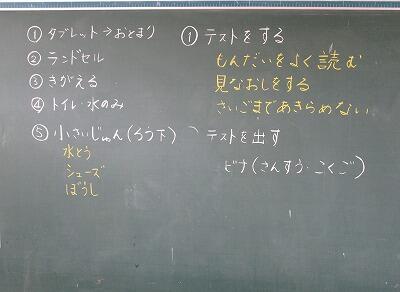 ① タブレット→おとまり
② ランドセル
③ きがえる
④ トイレ・水のみ
⑤ 小さいじゅん(ろう下)
水とう
シューズ
ぼうし
① テストをする
もんだいをよく読む
見なおしをする
さいごまであきらめない
テストを出す
ビナ(さんすう・こくご)